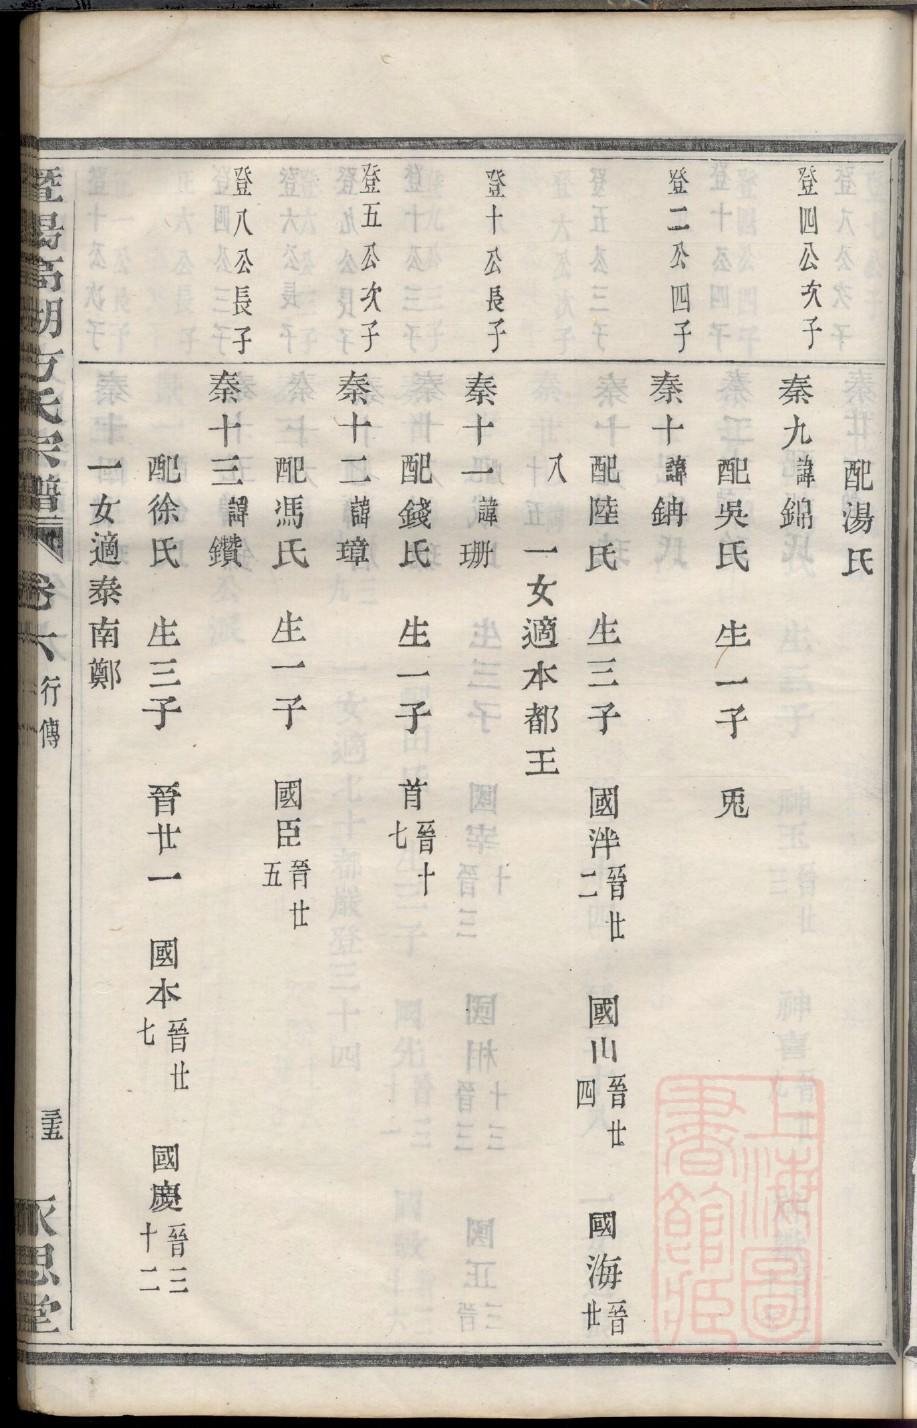 配湯氏
登四公次子
秦九諱錦
配吳氏 生一子 兎
登二公四子
秦十諱鈉
配陸氏 生三子 國泮晉廿二 國山晉廿四 國海晉廿
八 一女適本都王
登十公長子
秦十一諱珊
配錢氏 生一子 首晉十七
登五公次子
秦十二諱璋
配馮氏 生一子 國臣晉廿五
登八公長子
秦十三諱鑽
配徐氏 生三子 晉廿一 國本晉廿七 國慶晉三十二
一女適泰南鄭
暨陽高湖方氏宗譜 卷六 行傳 永思堂
上海圖書館藏